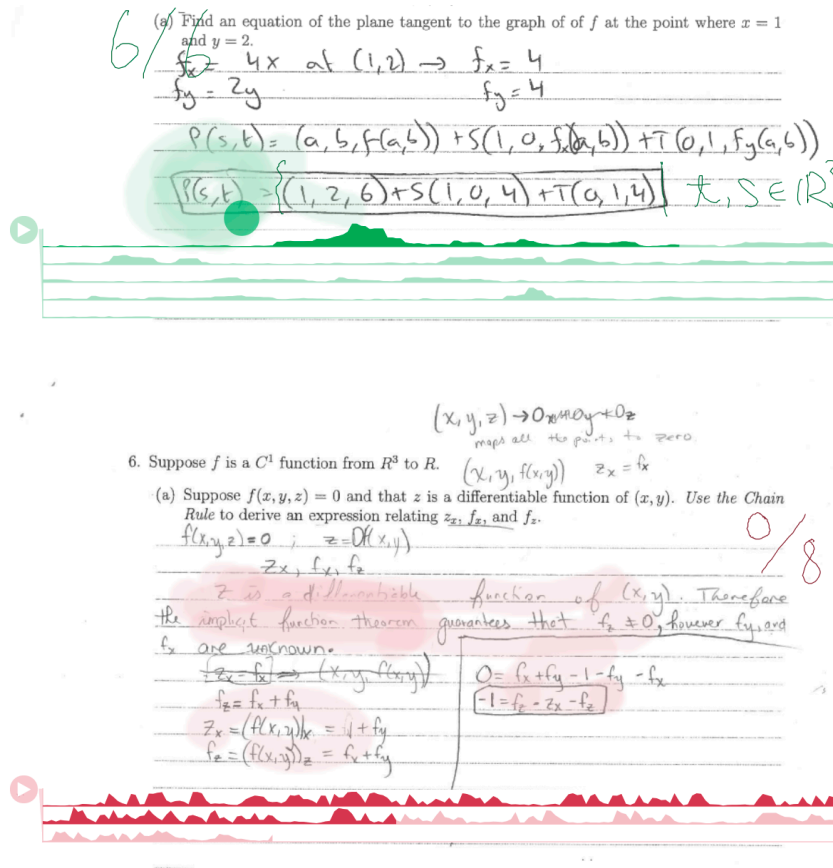 (a) Find an equation of the plane tangent to the graph of of f at the point where x = 1
and y = 2.
6/6
fx = 4x at (1,2) → fx = 4
fy = 2y fy = 4
P(s,t) = (a, b, f(a,b)) + S(1, 0, fx(a,b)) + T(0, 1, fy(a,b))
P(s,t) = {(1, 2, 6) + S(1, 0, 4) + T(0, 1, 4)| t, S ∈ ℝ
(x, y, z) → 0x 0y + 0z
maps all the points to zero.
6. Suppose f is a C¹ function from R³ to R.
(x, y, f(x,y)) zx = fx
(a) Suppose f(x, y, z) = 0 and that z is a differentiable function of (x, y). Use the Chain
Rule to derive an expression relating zx, fx, and fz.
0/8
f(x,y,z) = 0 ; z = Df(x,y)
zx, fx, fz
z is a differentiable function of (x,y). Therefore
the implicit function theorem guarantees that fz ≠ 0, however fy, and
fx are unknown.
[zx - fx] → (x, y, f(x,y))
fz = fx + fy
zx = (f(x,y))x = 1 + fy
fz = (f(x,y))z = fx + fy
0 = fx + fy - 1 - fy - fx
-1 = fz - zx - fz